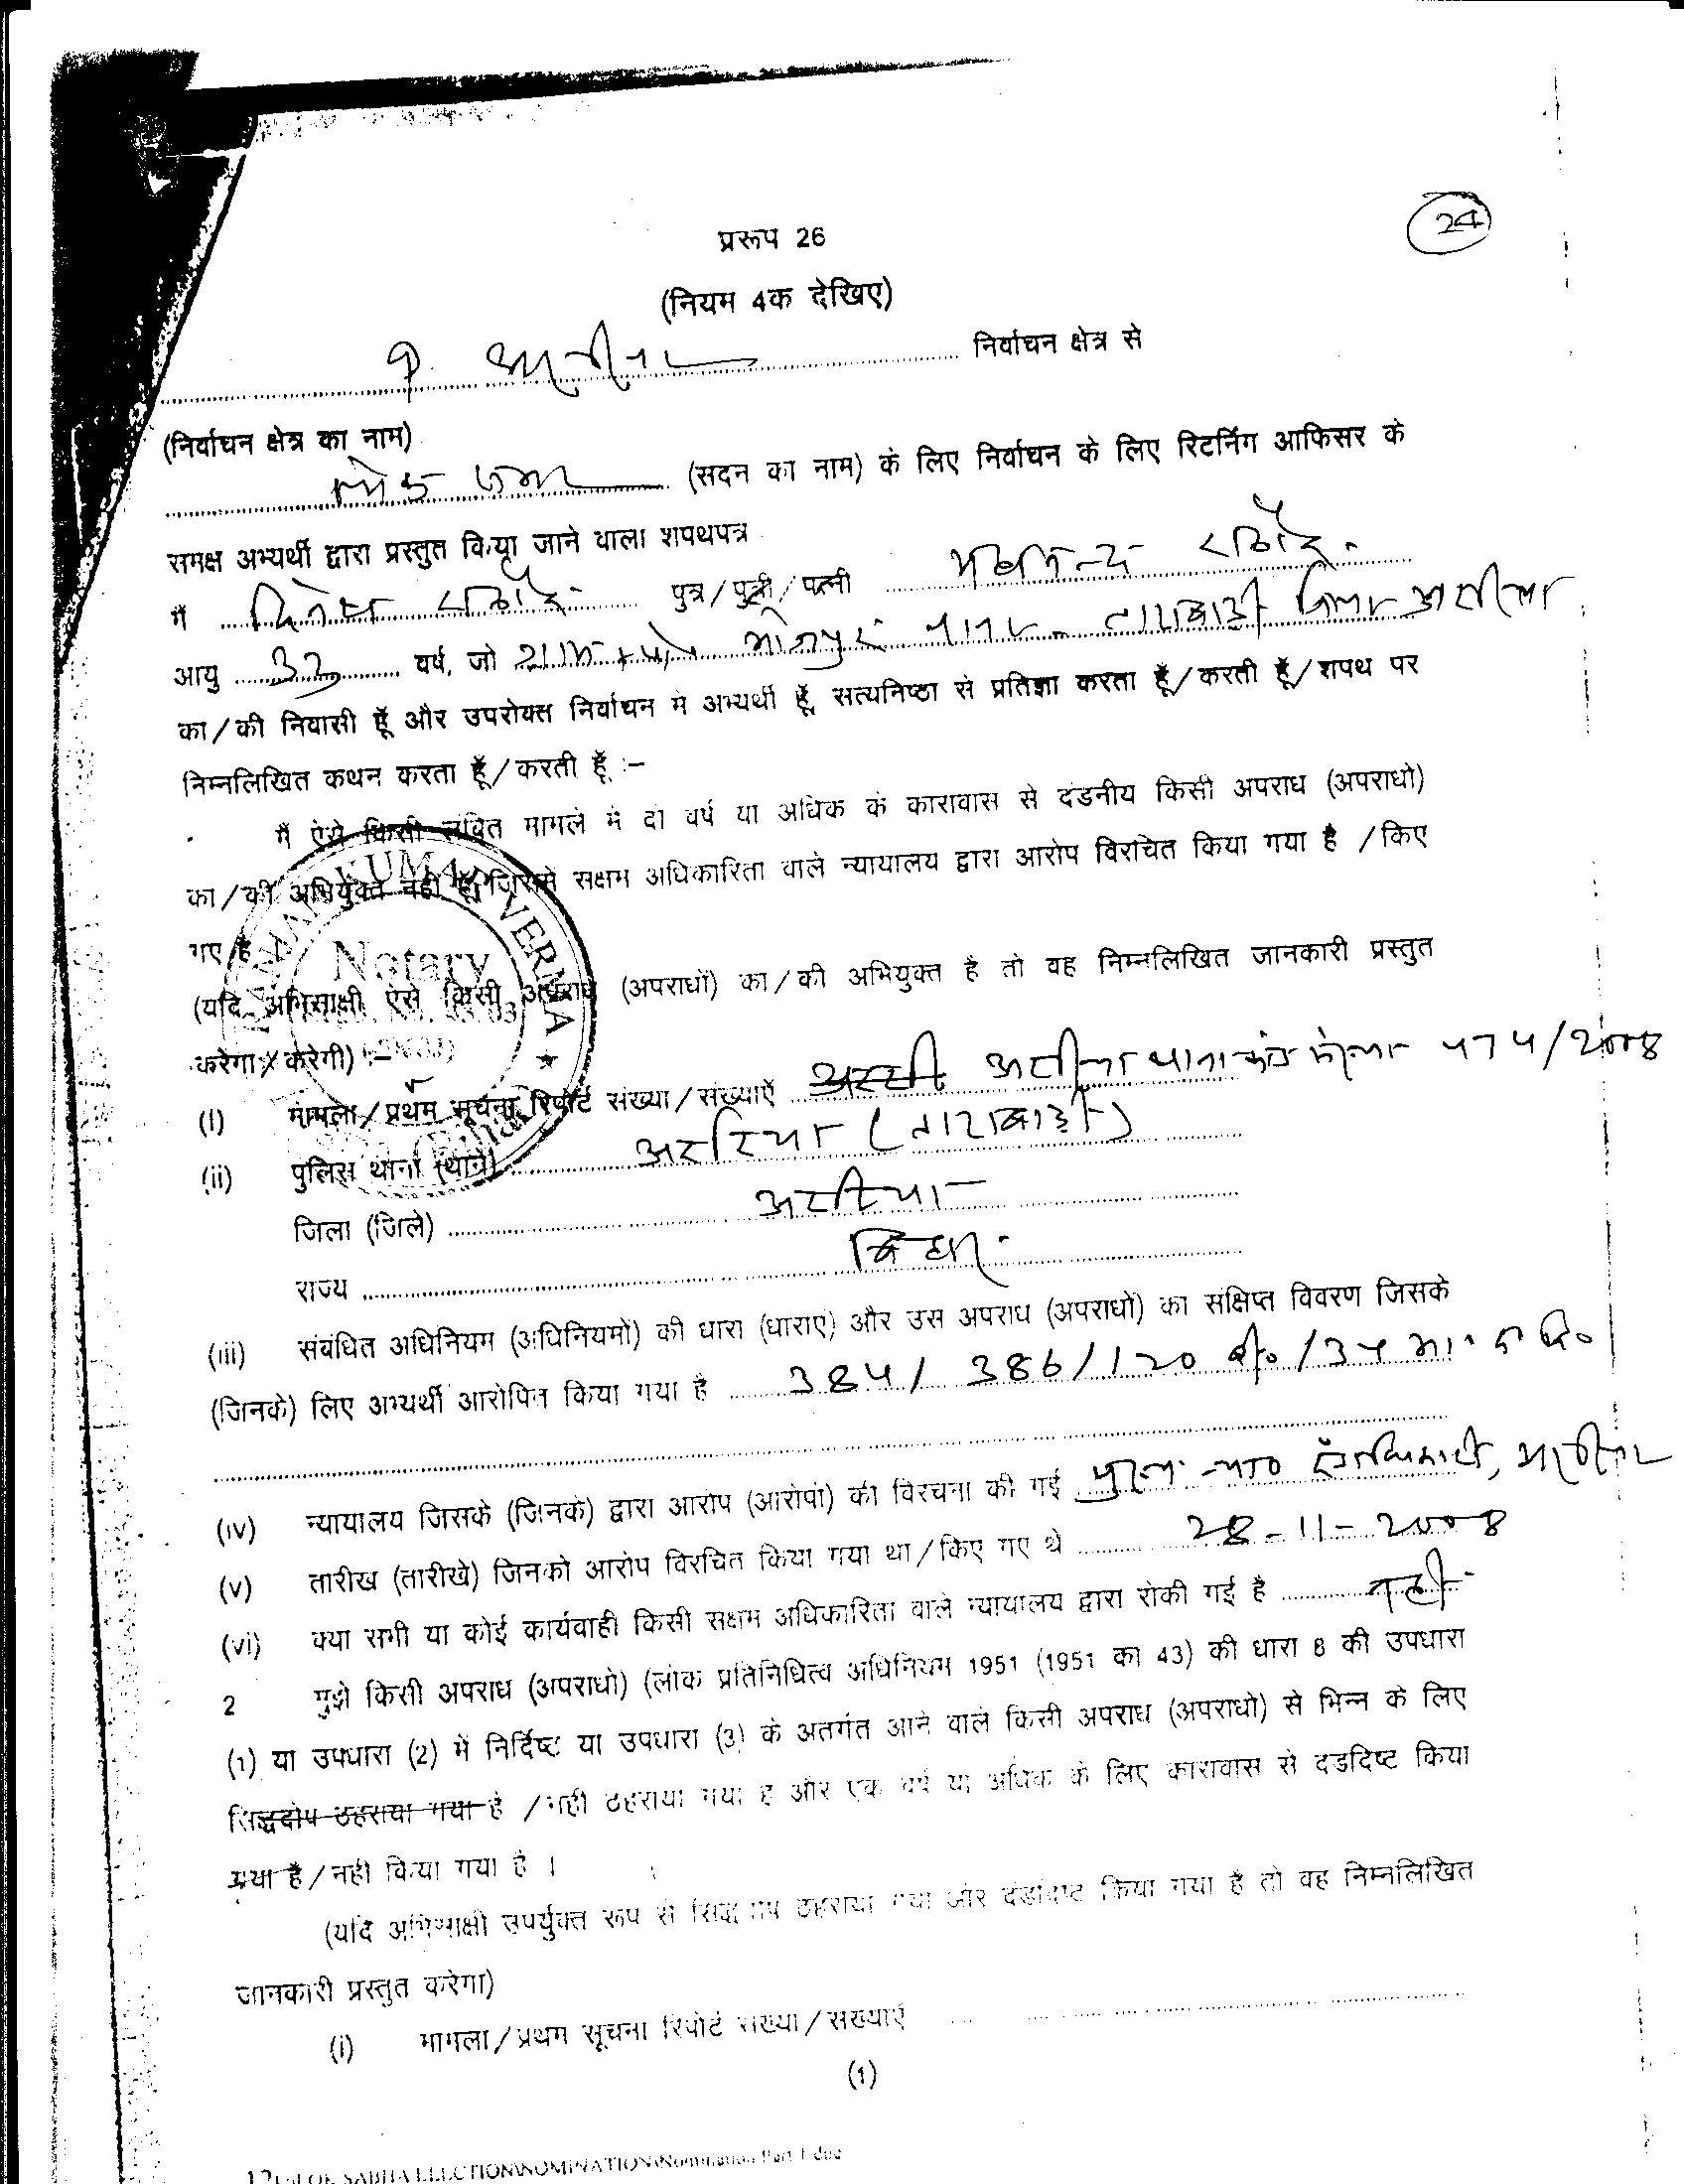 24
प्ररूप 26
(नियम 4क देखिए)
9 अररिया निर्वाचन क्षेत्र से
(निर्वाचन क्षेत्र का नाम)
लोक सभा (सदन का नाम) के लिए निर्वाचन के लिए रिटर्निंग आफिसर के
समक्ष अभ्यर्थी द्वारा प्रस्तुत किया जाने वाला शपथपत्र
मैं दिनेश राठौर पुत्र/पुत्री/पत्नी राठौर
आयु वर्ष, जो ताराबाड़ी जिला अररिया
का/की निवासी हूँ और उपरोक्त निर्वाचन मे अभ्यर्थी हूँ, सत्यनिष्ठा से प्रतिज्ञा करता हूँ/करती हूँ/शपथ पर
निम्नलिखित कथन करता हूँ/करती हूँ :–
मैं ऐसे किसी लंबित मामले मे दो वर्ष या अधिक के कारावास से दंडनीय किसी अपराध (अपराधो)
का/की अभियुक्त नही हूँ जिसमे सक्षम अधिकारिता वाले न्यायालय द्वारा आरोप विरचित किया गया है /किए
गए है
(यदि अभिसाक्षी ऐसे किसी अपराध (अपराधों) का/की अभियुक्त है तो वह निम्नलिखित जानकारी प्रस्तुत
करेगा/करेगी) :–
KUMAR VERMA
Notary
(i) मामला/प्रथम सूचना रिपोर्ट संख्या/संख्याएँ अररिया थाना कांड संख्या 474/2008
(ii) पुलिस थाना (थाने) अररिया (ताराबाड़ी)
जिला (जिले) अररिया
राज्य बिहार
(iii) संबंधित अधिनियम (अधिनियमों) की धारा (धाराएं) और उस अपराध (अपराधों) का संक्षिप्त विवरण जिसके
(जिनके) लिए अभ्यर्थी आरोपित किया गया है 384/ 386/120 बी०/34 भा० द० वि०
(iv) न्यायालय जिसके (जिनके) द्वारा आरोप (आरोपों) की विरचना की गई मुख्य न्या० दंडाधिकारी, अररिया
(v) तारीख (तारीखे) जिनको आरोप विरचित किया गया था/किए गए थे 28-11-2008
(vi) क्या सभी या कोई कार्यवाही किसी सक्षम अधिकारिता वाले न्यायालय द्वारा रोकी गई है नहीं
2 मुझे किसी अपराध (अपराधो) (लोक प्रतिनिधित्व अधिनियम 1951 (1951 का 43) की धारा 8 की उपधारा
(1) या उपधारा (2) में निर्दिष्ट या उपधारा (3) के अतर्गत आने वाले किसी अपराध (अपराधो) से भिन्न के लिए
सिद्धदोष ठहराया गया है /नही ठहराया गया है और एक वर्ष या अधिक के लिए कारावास से दडदिष्ट किया
गया है/नही किया गया है ।
(यदि अभिसाक्षी उपर्युक्त रूप से सिद्धदोष ठहराया गया और दंडादिष्ट किया गया है तो वह निम्नलिखित
जानकारी प्रस्तुत करेगा)
(i) मामला/प्रथम सूचना रिपोर्ट संख्या/सख्याएँ
(1)
LOK SABHA ELECTION\NOMINATION\Nomination Part-1.doc